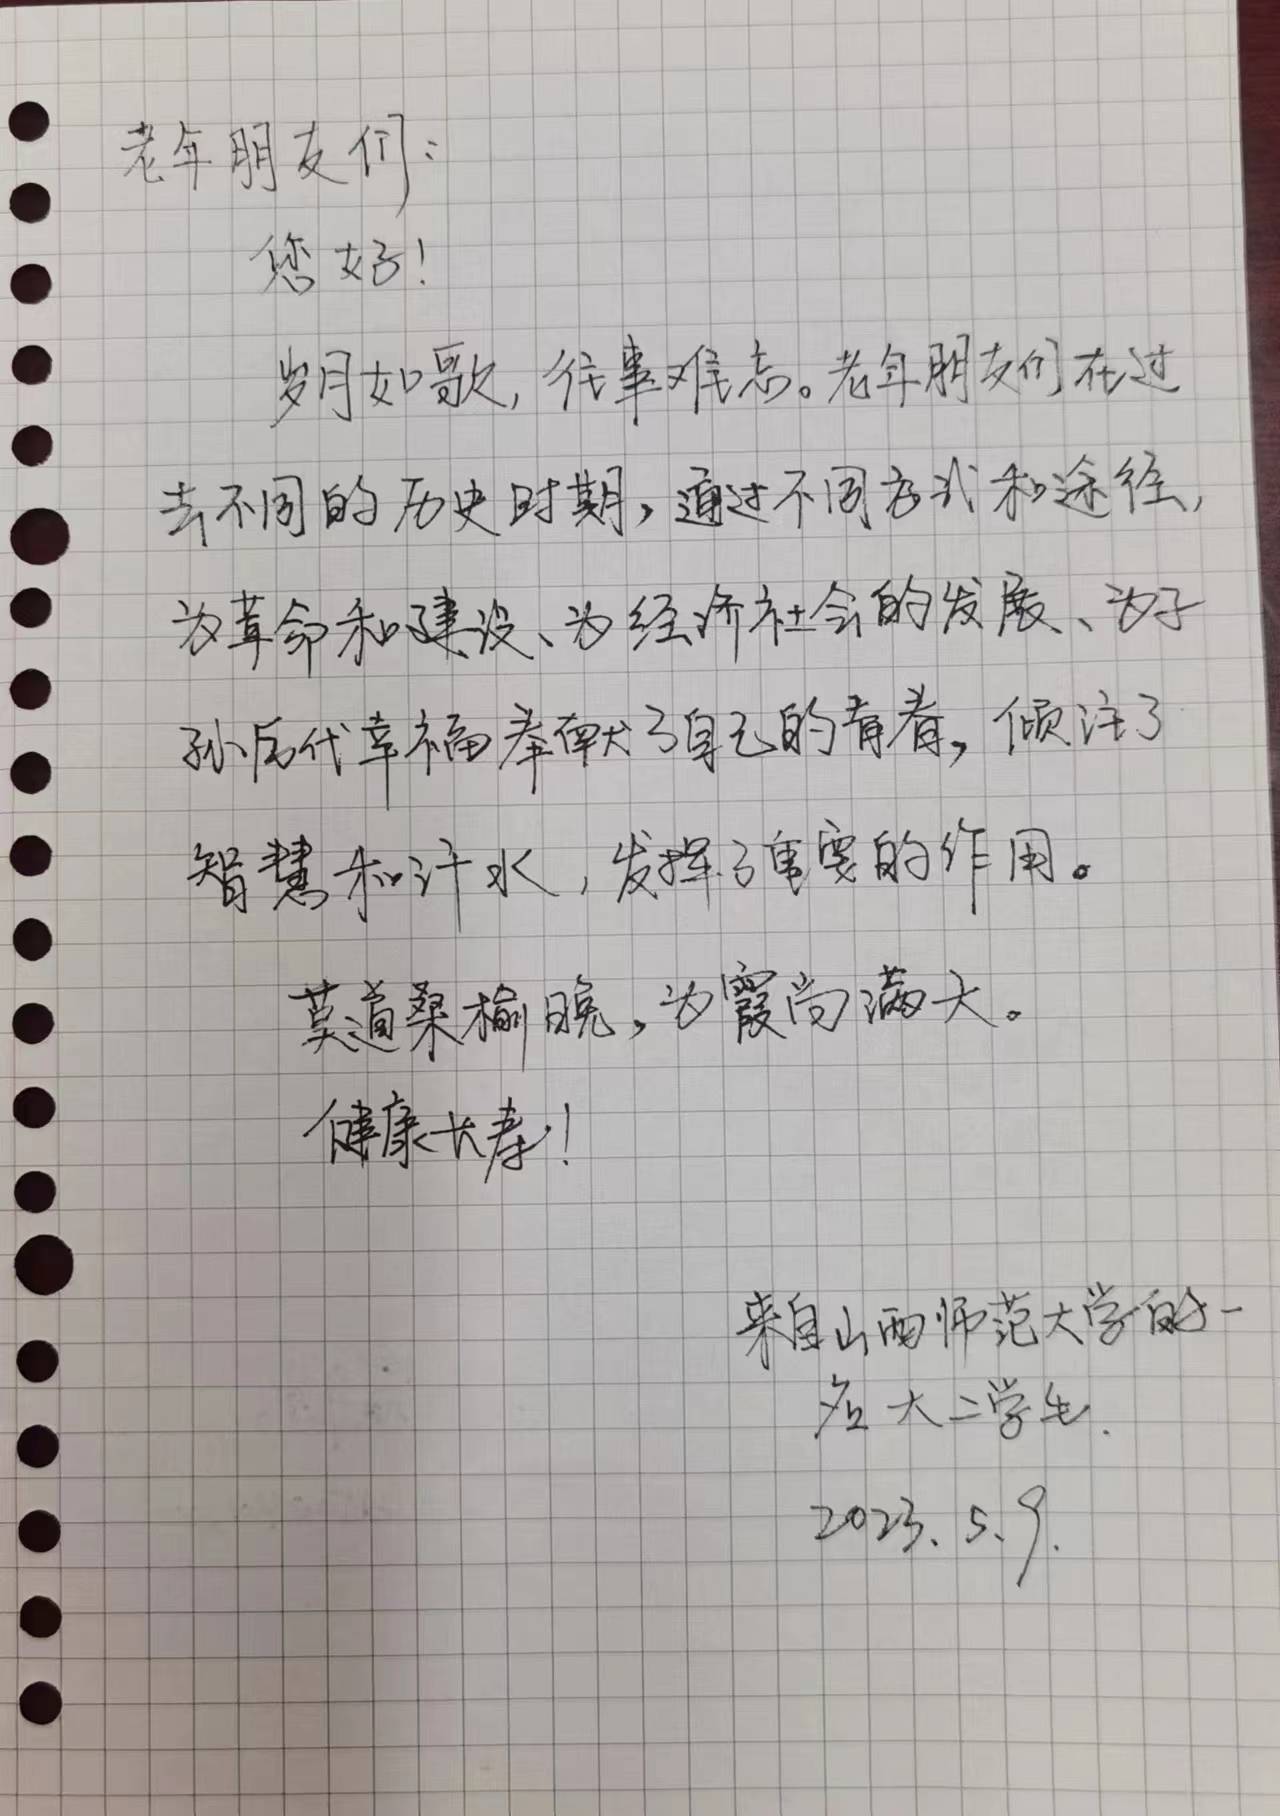 老年朋友们：
您好！
岁月如歌，往事难忘。老年朋友们在过
去不同的历史时期，通过不同方式和途径，
为革命和建设、为经济社会的发展、为子
孙后代幸福奉献了自己的青春，倾注了
智慧和汗水，发挥了重要的作用。
莫道桑榆晚，为霞尚满天。
健康长寿！
来自山西师范大学的一
名大二学生.
2023.5.9.